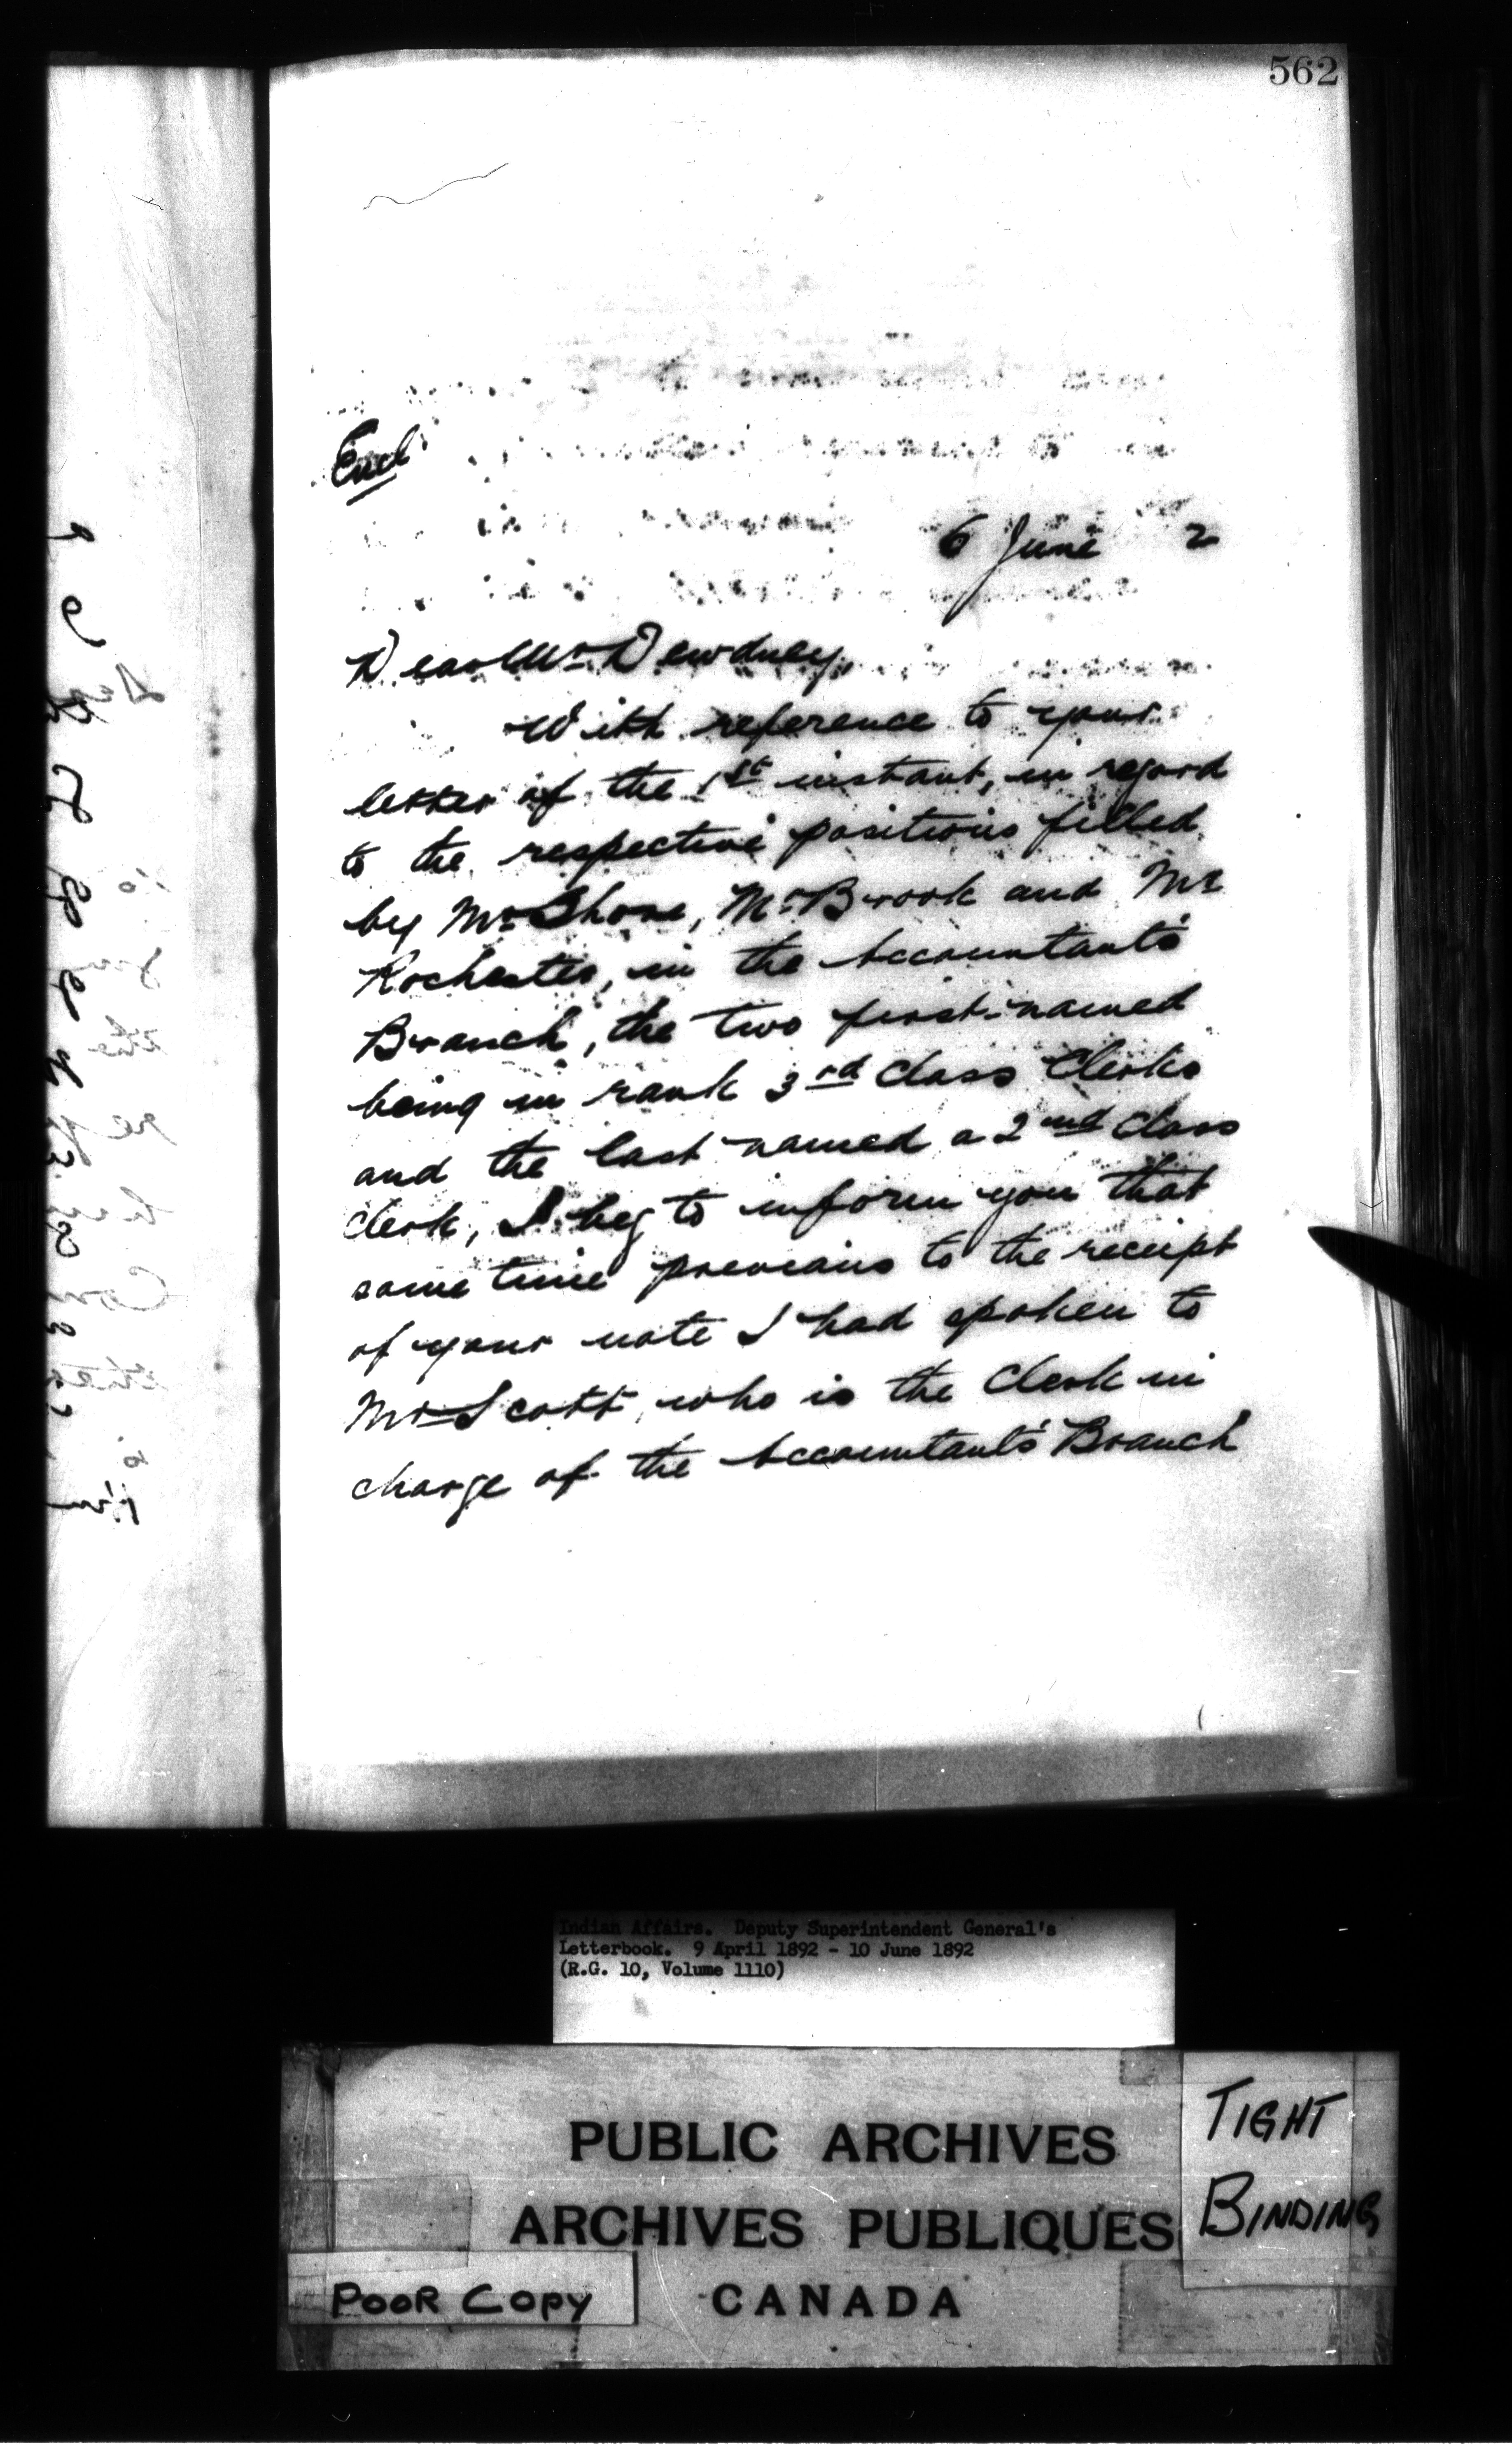 562
Encl.
6 June 2
Dear Mr Dewdney,
With reference to your
letter of the 1st instant, in regard
to the respective positions filled
by Mr Shore, Mr Brook and Mr
Rochester, in the Accountant's
Branch, the two first-named
being in rank 3rd Class Clerks
and the last named a 2nd Class
Clerk, I beg to inform you that
some time previous to the receipt
of your note I had spoken to
Mr Scott, who is the Clerk in
charge of the Accountant's Branch
Indian Affairs. Deputy Superintendent General's
Letterbook. 9 April 1892 - 10 June 1892
(R.G. 10, Volume 1110)
PUBLIC ARCHIVES
ARCHIVES PUBLIQUES
CANADA
TIGHT
BINDING
POOR COPY